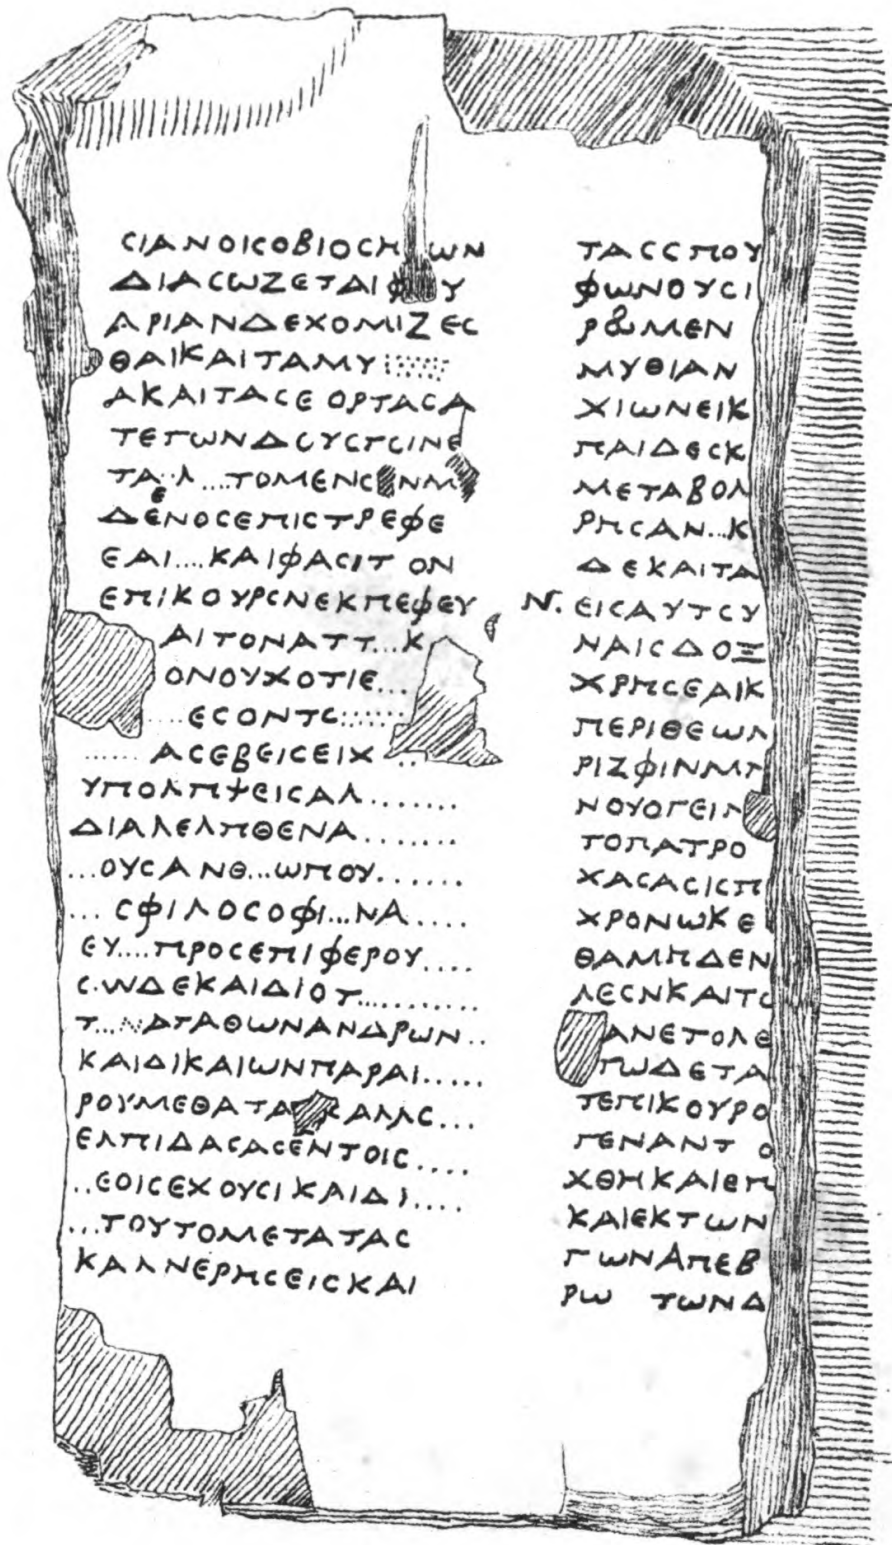 CΙΑΝΟΙCΟΒΙΟCΗ ΩΝ
ΔΙΑCΩΖΕΤΑΙΦ Υ
ΑΡΙΑΝΔΕΧΟΜΙΖΕC
ΘΑΙΚΑΙΤΑΜΥ
ΑΚΑΙΤΑCΕΟΡΤΑCΑ
ΤΕΓΩΝΔCΥCΓCΙΝΕ
ΤΑ.Λ...ΤΟΜΕΝC ΝΜ
ΔΕΝΟCΕΠΙCΤΡΕΦΕ
ΕΑΙ...ΚΑΙΦΑCΙΤ ΟΝ
ΕΠΙΚΟΥΡCΝΕΚΠΕΦΕΥ
ΑΙΤΟΝΑΤΤ...Κ
ΟΝΟΥΧΟΤΙΕ...
....ΕCΟΝΤC......
.....ΑCΕΒΕΙCΕΙΧ...
ΥΠΟΛΠΨΕΙCΑΛ.......
ΔΙΑΛΕΛΠΘΕΝΑ.......
...ΟΥCΑΝΘ...ΩΠΟΥ.......
...CΦΙΛΟCΟΦΙ...ΝΑ....
ΕΥ....ΠΡΟCΕΠΙΦΕΡΟΥ....
C.ΩΔΕΚΑΙΔΙΟΤ.........
Τ...ΝΑΓΑΘΩΝΑΝΔΡΩΝ..
ΚΑΙΔΙΚΑΙΩΝΠΑΡΑΙ.....
ΡΟΥΜΕΘΑΤΑ ΚΑΛΛC...
ΕΛΠΙΔΑCΑCΕΝΤΟΙC....
..ΕΟΙCΕΧΟΥCΙΚΑΙΔΙ....
...ΤΟΥΤΟΜΕΤΑΤΑC
ΚΑΛΝΕΡΗCΕΙCΚΑΙ
ΤΑCCΠΟΥ
ΦΩΝΟΥCΙ
ΡΩΜΕΝ
ΜΥΘΙΑΝ
ΧΙΩΝΕΙΚ
ΠΑΙΔΕCΚ
ΜΕΤΑΒΟΛ
ΡΗCΑΝ...Κ
ΔΕΚΑΙΤΑ
Ν. ΕΙCΑΥΤCΥ
ΝΑΙCΔΟΞ
ΧΡΗCΕΑΙΚ
ΠΕΡΙΘΕΩΛ
ΡΙΖΦΙΝΜΓ
ΝΟΥΟΓΕΙΛ
ΤΟΠΑΤΡΟ
ΧΑCΑCΙCΠ
ΧΡΟΝΩΚΕ
ΘΑΜΠΔΕΝ
ΛΕCΝΚΑΙΤC
ΑΝΕΤΟΛΕ
ΓΩΔΕΤΑ
ΤΕΠΙΚΟΥΡΟ
ΓΕΝΑΝΤ Ο
ΧΘΗΚΑΙΕΠ
ΚΑΙΕΚΤΩΝ
ΓΩΝΑΠΕΒ
ΡΩ ΤΩΝΔ